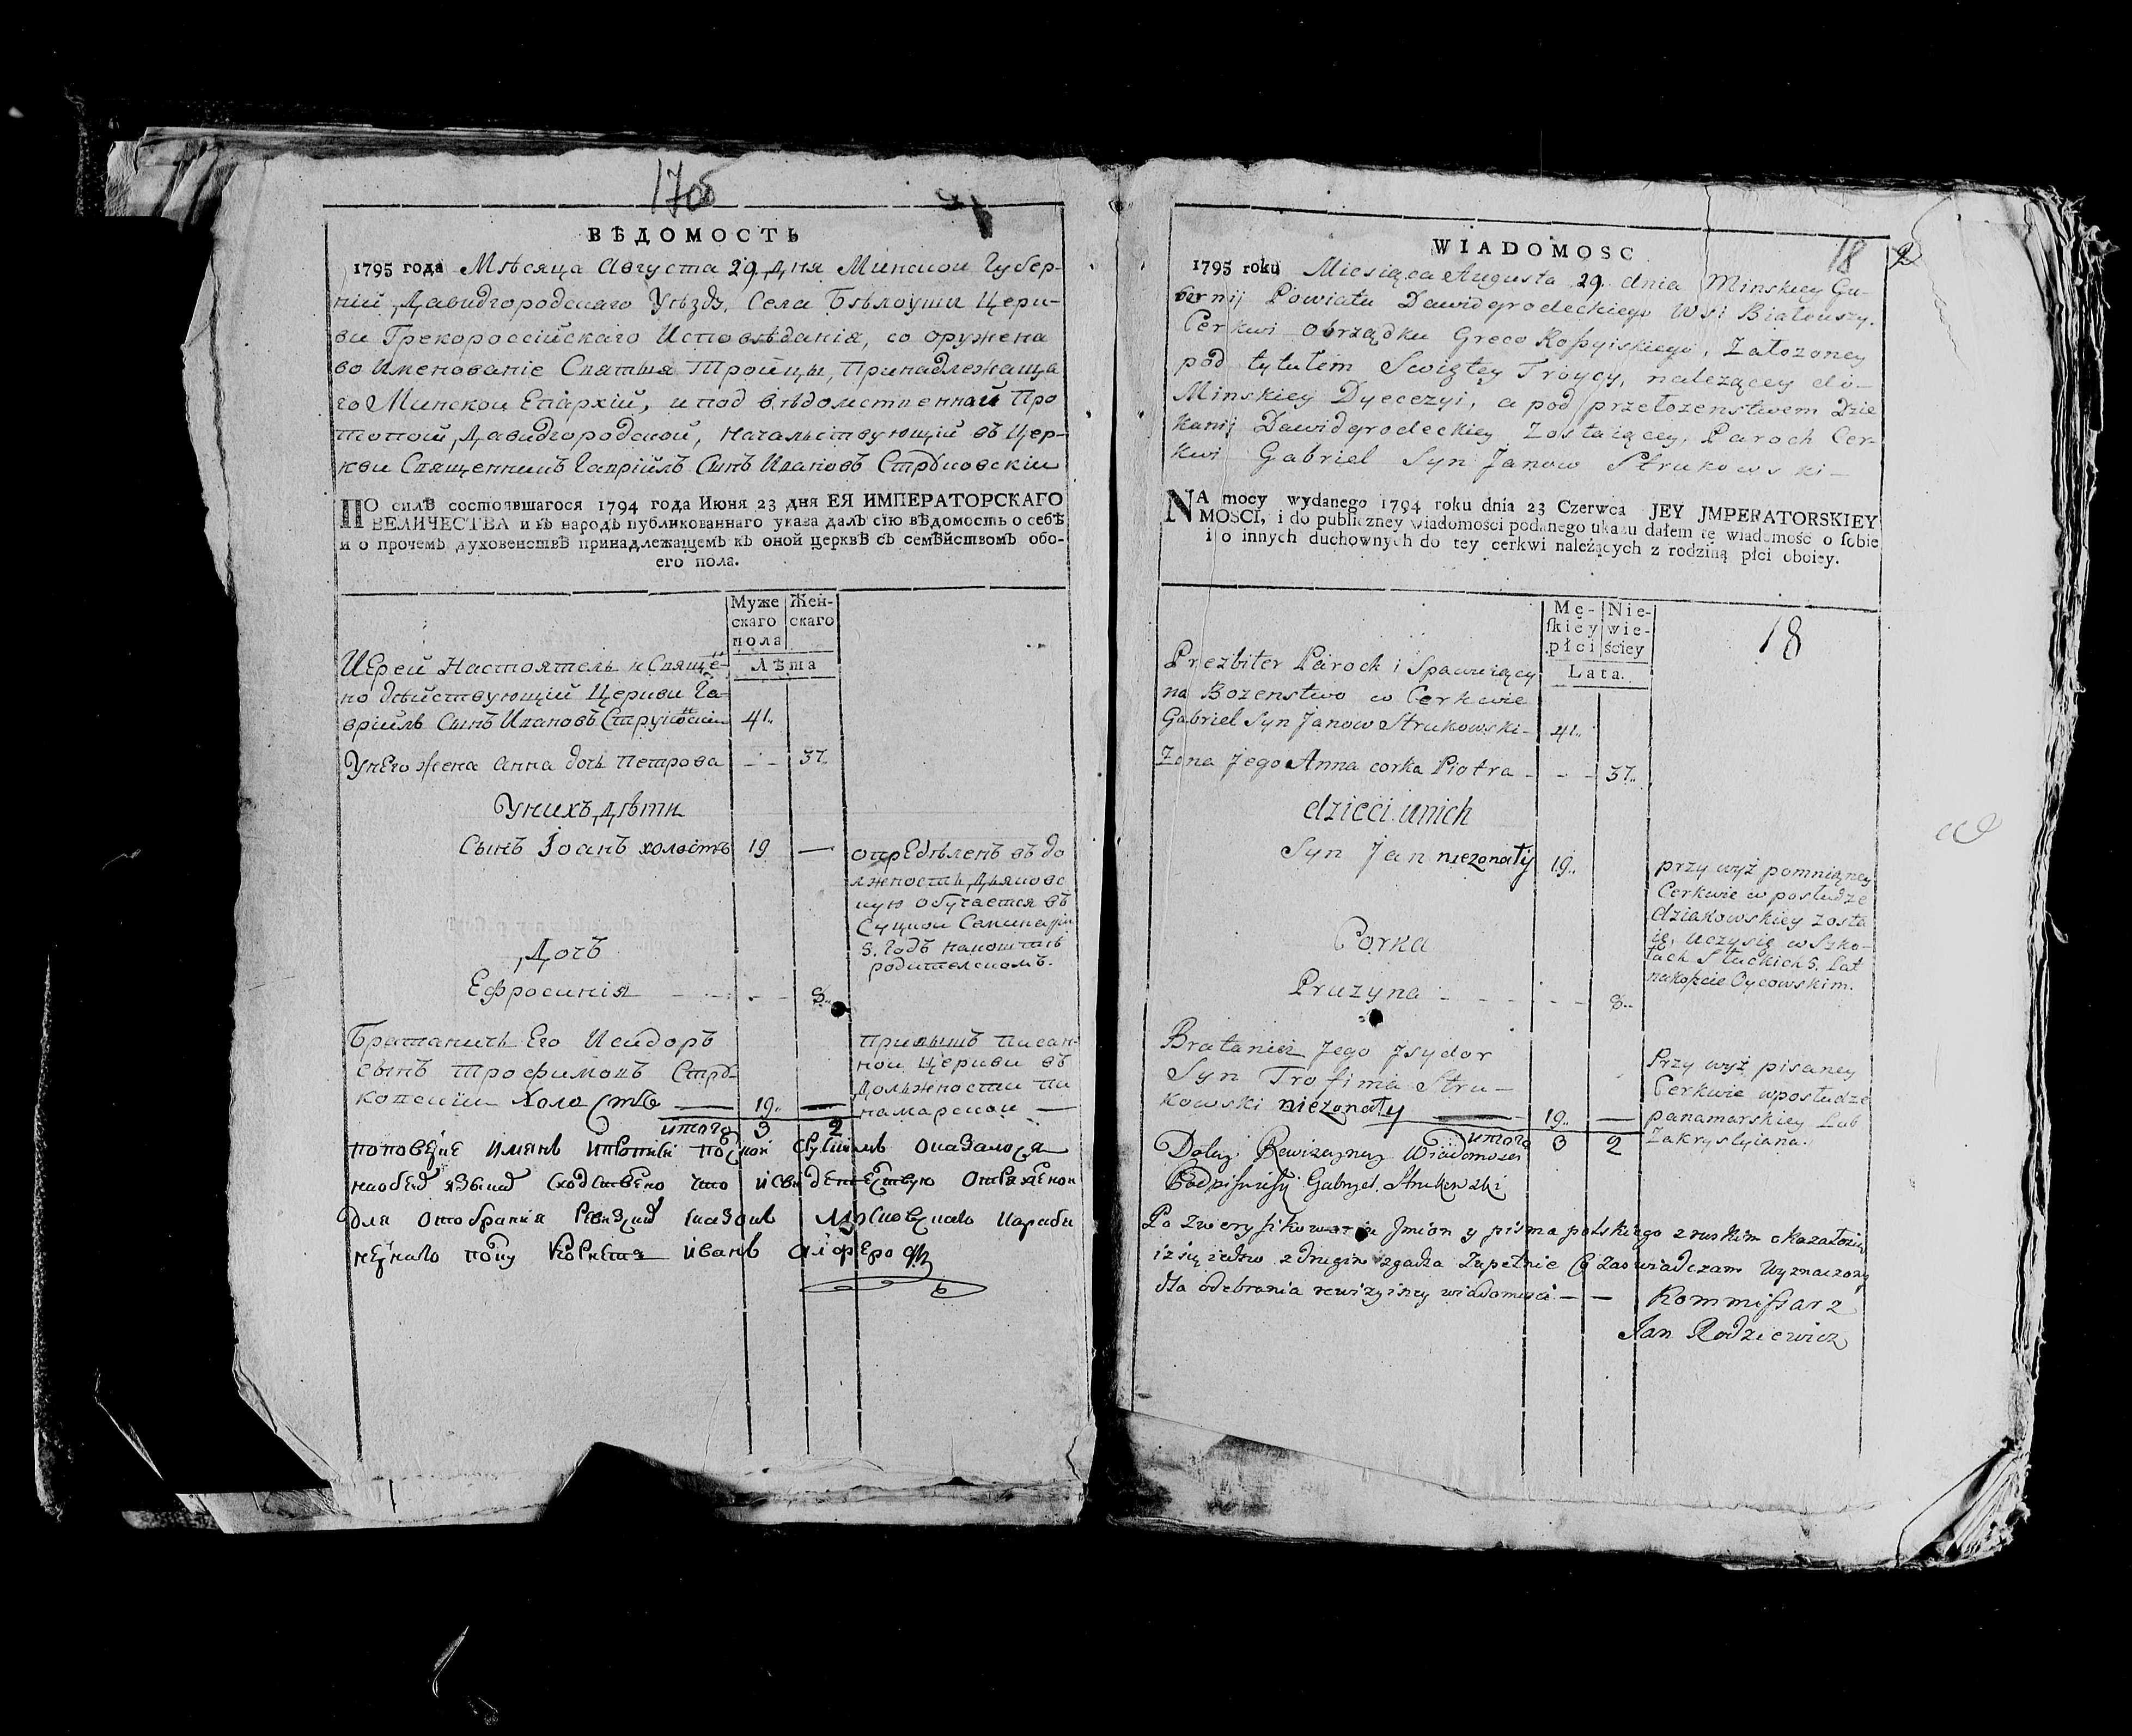 ВѢДОМОСТЬ
1795 года Мѣсяца Августа 29 дня Минской Губер-
ніи Давидгородскаго Уѣзда, Села Бѣлоуши Церк-
ви Грекороссійскаго Исповѣданія, сооружена
во Именованіе Святыя Тройцы, Принадлежаща
го Минской Епархіи, и под вѣдомственной Про
топопіи Давидгородской, Начальствующій въ Цер-
кви Священникъ Гавріилъ Сынъ Ивановъ Струковскій
ПО силѣ состоявшагося 1794 года Июня 23 дня ЕЯ ИМПЕРАТОРСКАГО
ВЕЛИЧЕСТВА и въ народъ публикованнаго указа далъ сію вѣдомость о себѣ
и о прочемъ духовенствѣ принадлежащемъ къ оной церквѣ съ семѣйствомъ обо-
его пола.
Муже скаго пола Жен- скаго
Лѣта
Иерей Настоятель и Священ-
но дѣйствующій Церкви Га-
вріилъ Сынъ Ивановъ Струковскій 41..
У него Жена Анна дочь Петрова - - 37..
У нихъ дѣти
Сынъ Іоанъ холостъ 19 —
опредѣленъ въ до
лжность дьяковс
кую обучается въ
Слуцкой Семинаріи
5. годъ на коштѣ
родительскомъ.
Дочь
Ефросинія - - - - 8..
Братаничь Его Исидоръ
сынъ Трофимовъ Стру-
ковскій Холостъ — 19.. —
при вышъ писан-
ной Церкви въ
Должности по
намарской —
итого 3 2
для отобранія
Иванъ
WIADOMOSC
18
1795 roku Miesiąca Augusta 29. dnia Minskiey Gu-
bernij Powiatu Dawidgrodeckiego Wsi Białouszy.
Cerkwi obrządku Greco Roſsyiskiego, Załozoney
pod tytułem Swiętey Troycy, nalezącey do-
Minskiey Dyecezyi, a pod przełozenstwem Dzie
kanij Dawidgrodeckiey Zostaiącey, Paroch Cer-
kwi Gabriel Syn Janow Strukowski-
NA mocy wydanego 1794 roku dnia 23 Czerwca JEY JMPERATORSKIEY
MOSCI, i do publiczney wiadomości podanego ukazu dałem tę wiadomość o ſobie
i o innych duchownych do tey cerkwi należących z rodziną płci oboiey.
Mę- ſkiey płci Nie- wie- ściey
Lata.
18
Prezbiter Paroch i Sprawuiący
na Bozenstwo w Cerkwie
Gabriel Syn Janow Strukowski- 41..
Zona Jego Anna corka Piotra - - - 37..
dzieci unich
Syn Jan niezonaty 19..
przy wyż pomnioney
Cerkwie w posłudze
dziakowskiey zosta
ie, uczy się w Szko-
łach Słuckich 5. Lat
na koſzcie Oycowskim.
Corka
Pruzyna - - - - - 8..
Bratanicz Jego Jsydor
Syn Trofima Stru-
kowski niezonaty — 19.. —
Przy wyż pisaney
Cerkwie w posłudze
panamarskiey Lub
Zakrystyiana.
итого 3 2
Do tey Rewizyyney Wiadomosci
Podpisuię się Gabryel Strukowski
Po zweryfikowaniu Jmion y pisma polskiego z ruskim okazało się
iż się iedno z drugim zgadza zupełnie Co zaswiadczam wyznaczony
dla odebrania rewizyiney wiadomosci — — Kommiſsarz
Jan Rodziewicz